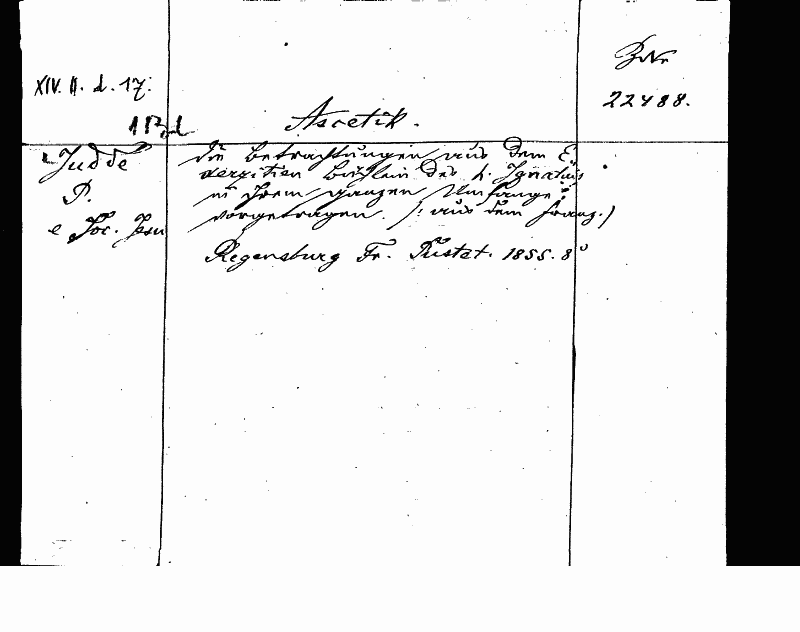 XIV. II. d. 17.
ZNr
22488.
1 Bd
Ascetik.
Judde
P.
e Soc. Jesu
Die Betrachtungen aus dem Ex-
ercitien Büchlein des h. Ignatius
in ihrem ganzen Umfange
vorgetragen. (: aus dem Franz.)
Regensburg Fr. Pustet. 1855. 8°